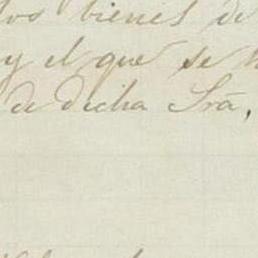 los bienes de
y el que se
de dicha Sra,